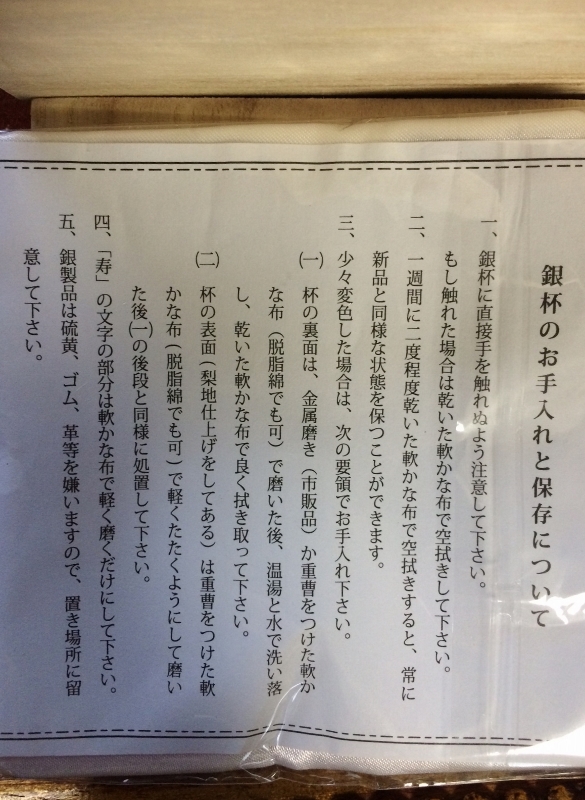 銀杯のお手入れと保存について
一、銀杯に直接手を触れぬよう注意して下さい。
もし触れた場合は乾いた軟かな布で空拭きして下さい。
二、一週間に二度程度乾いた軟かな布で空拭きすると、常に
新品と同様な状態を保つことができます。
三、少々変色した場合は、次の要領でお手入れ下さい。
㈠ 杯の裏面は、金属磨き（市販品）か重曹をつけた軟か
な布（脱脂綿でも可）で磨いた後、温湯と水で洗い落
し、乾いた軟かな布で良く拭き取って下さい。
㈡ 杯の表面（梨地仕上げをしてある）は重曹をつけた軟
かな布（脱脂綿でも可）で軽くたたくようにして磨い
た後㈠の後段と同様に処置して下さい。
四、「寿」の文字の部分は軟かな布で軽く磨くだけにして下さい。
五、銀製品は硫黄、ゴム、革等を嫌いますので、置き場所に留
意して下さい。